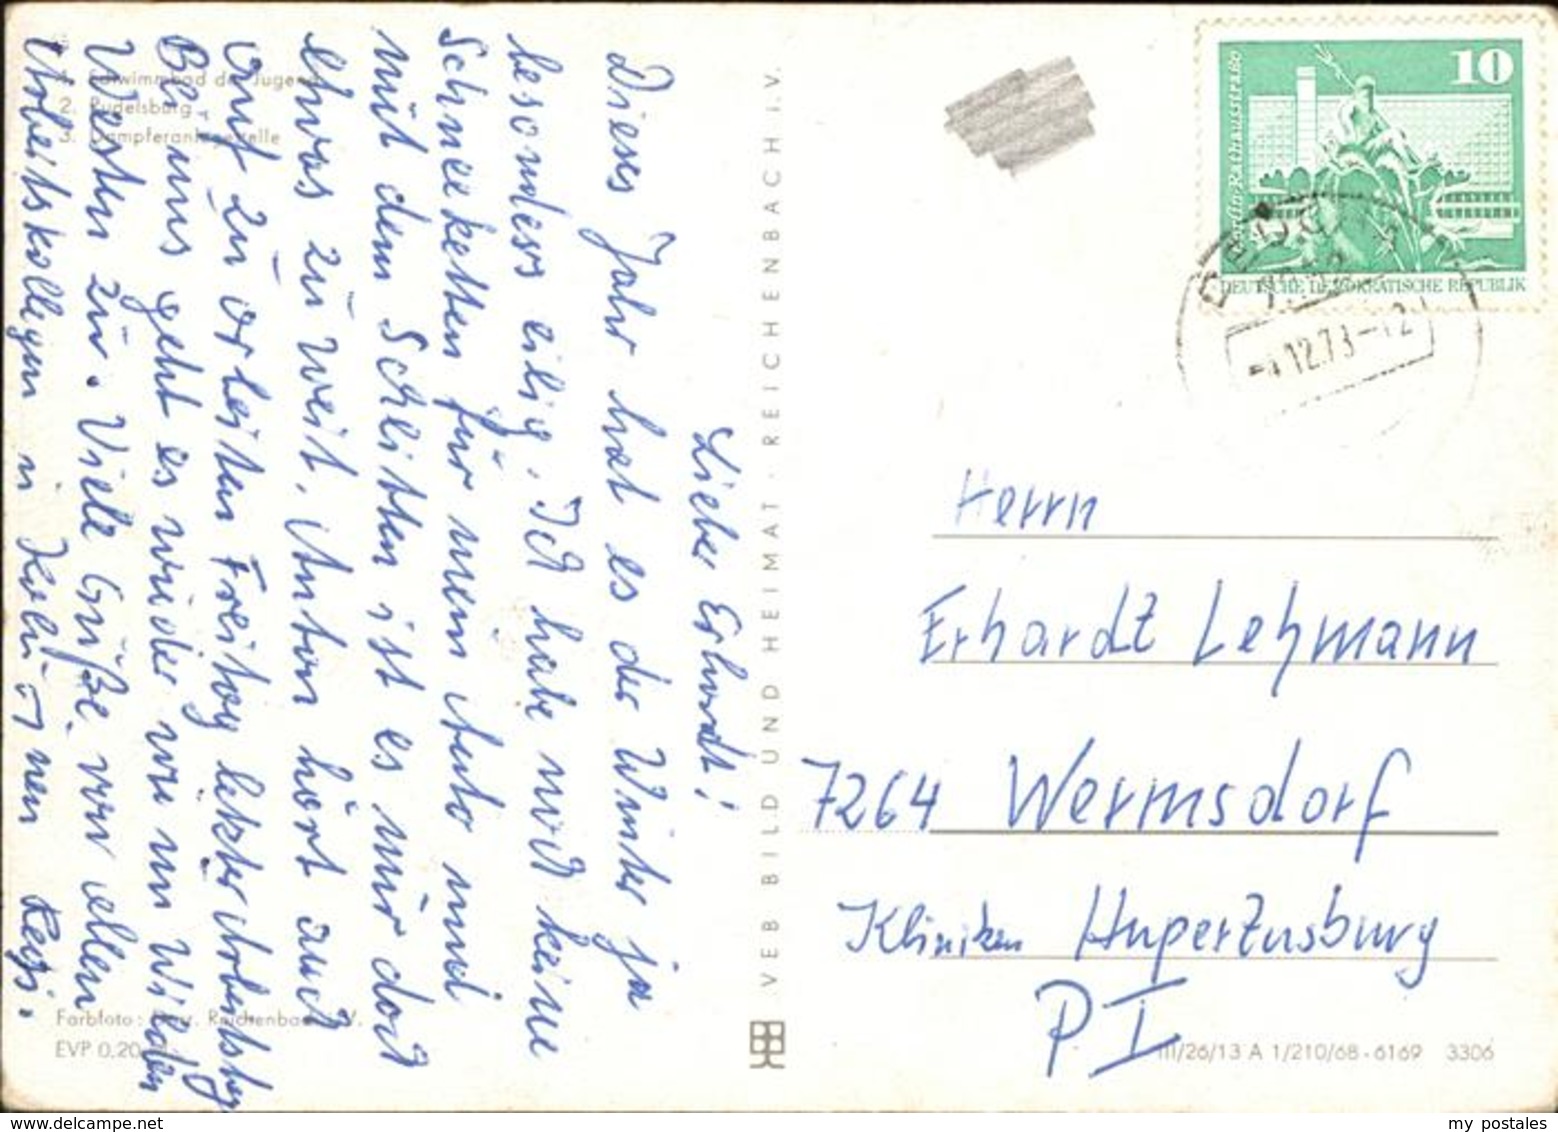 1. Schwimmbad der Jugend
2. Rudelsburg
3. Dampferanlegestelle
Lieber Erhardt!
Dieses Jahr hat es der Winter ja
besonders eilig. Ich habe noch keine
Schneeketten für mein Auto und
mit dem Schlitten ist es mir doch
etwas zu weit. Anton hört auch
auf zu arbeiten Freitag letzter Arbeitstag
Bei uns geht es wieder wie im Wilden
Westen zu. Viele Grüße von allen
Arbeitskollegen
Farbfoto: Reichenbach i. V.
EVP 0,20
VEB BILD UND HEIMAT · REICHENBACH I. V.
10
DEUTSCHE DEMOKRATISCHE REPUBLIK
12.73-12
Herrn
Erhardt Lehmann
7264 Wermsdorf
Kliniken Hupertusburg
P I
III/26/13 A 1/210/68 - 6169 3306
my postales